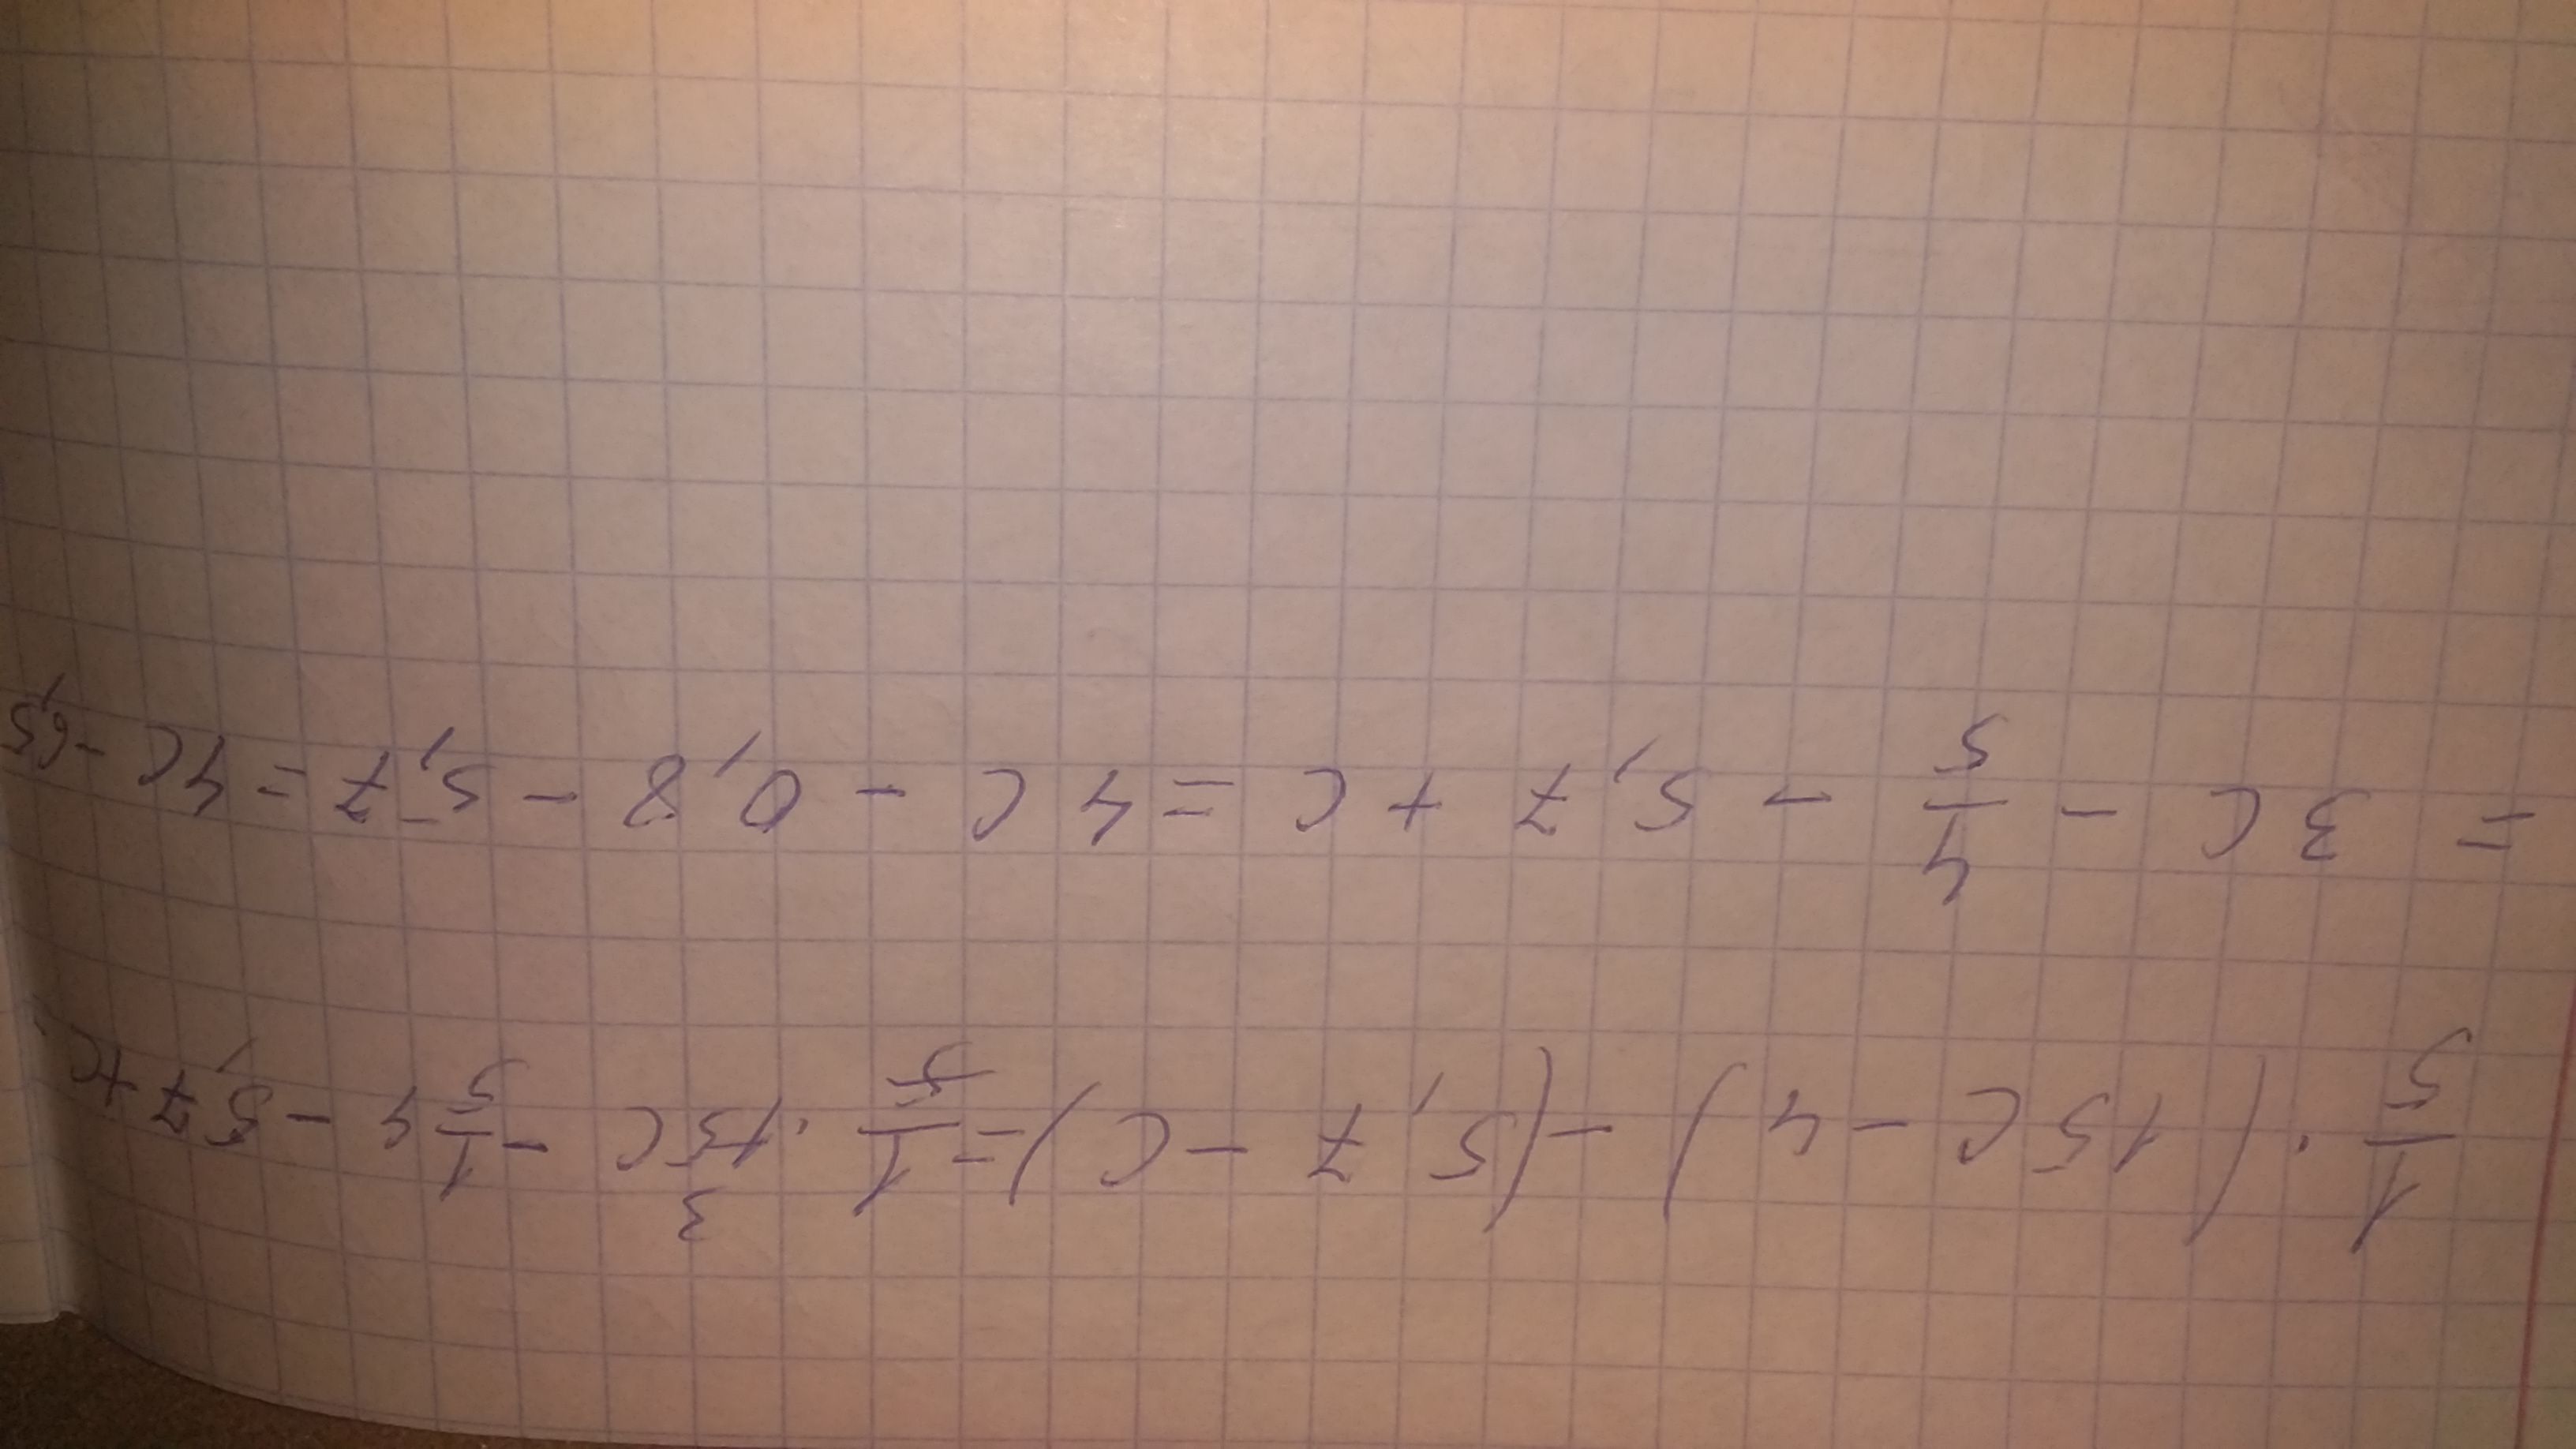 1/5 · (15c - 4) - (5,7 - c) = 1/5 · 15c 3 - 1/5 4 - 5,7 + c
= 3c - 4/5 - 5,7 + c = 4c - 0,8 - 5,7 = 4c - 6,5